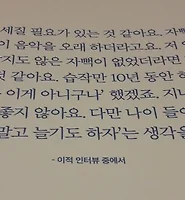 세질 필요가 있는 것 같아요. 자뻑
이 음악을 오래 하더라고요. 저 역
지도 않은 자뻑이 없었더라면
것 같아요. 습작만 10년 동안 하
이게 아니구나' 했겠죠. 지나
좋지 않아요. 다만 나이 들어
말고 늘기도 하자'는 생각을
- 이적 인터뷰 중에서